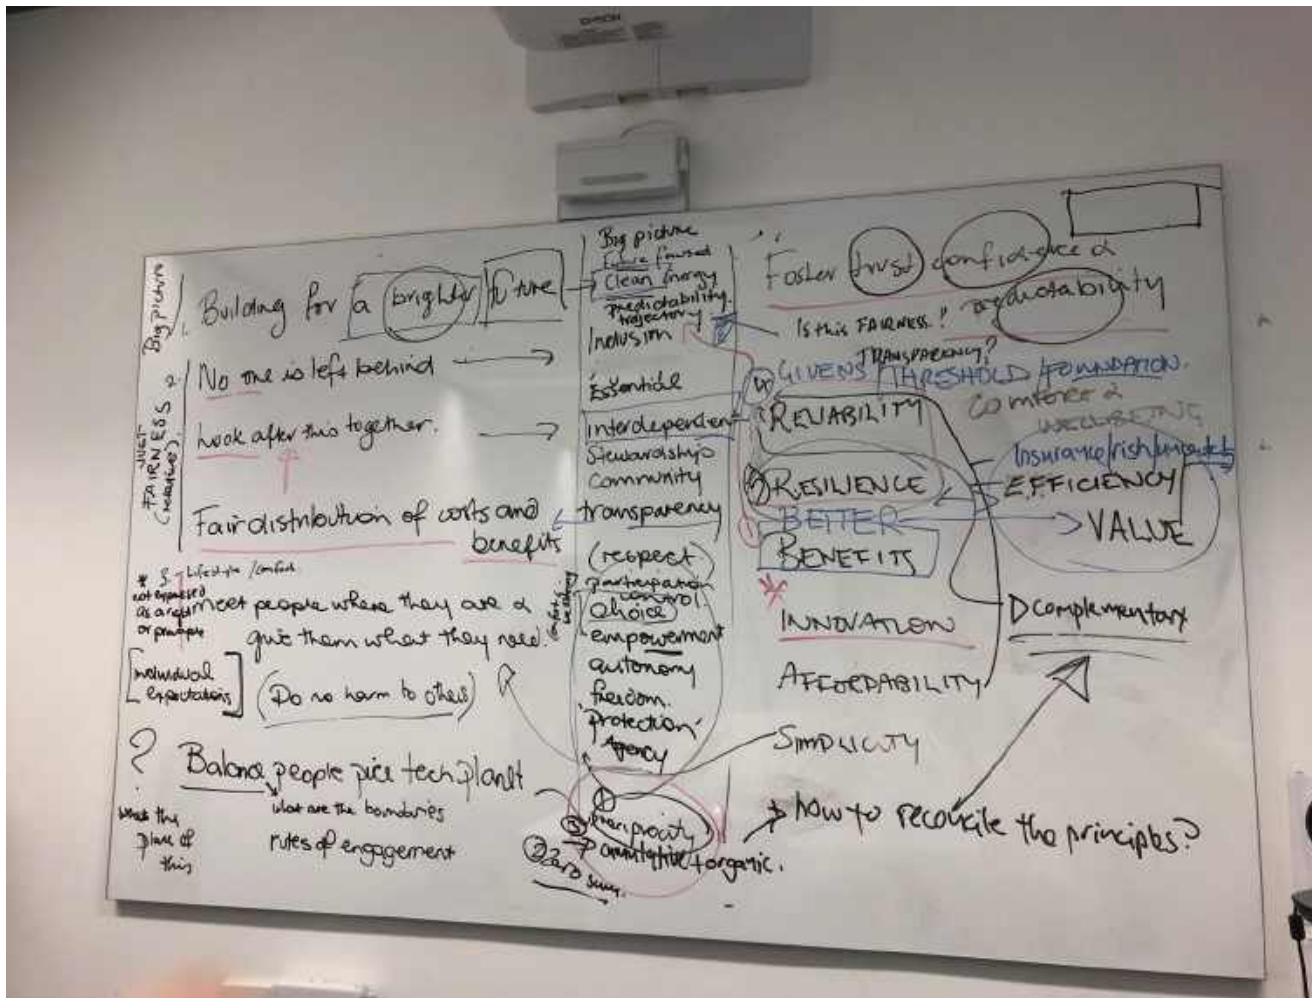 EPSON
Big picture
1. Building for a brighter future
2. No one is left behind
Look after this together.
JUST
FAIRNESS
Fair distribution of costs and
benefits
Lifestyle / comfort
* not expressed
as a right
or principle
meet people where they are &
give them what they need.
[Individual
expectations]
(Do no harm to others)
?
Balance people price tech planet
what are the boundaries
rules of engagement
what's the
place of
this
Big picture
Future focused
Clean Energy
predictability
trajectory
Inclusion
Essential
interdependen
Stewardship
community
transparency
(respect)
participation
control
choice
empowerment
autonomy
freedom.
'protection'
Agency
①
reciprocity
③
cumulative + organic.
② Zero sum.
Foster trust confidence &
predictability
Is this FAIRNESS?
TRANSPARENCY?
④ GIVENS / THRESHOLD / FOUNDATION.
RELIABILITY
COMFORT &
WELLBEING
Insurance/risk/
RESILIENCE
EFFICIENCY
BETTER
VALUE
BENEFITS
*
INNOVATION
complementary
AFFORDABILITY
SIMPLICITY
how to reconcile the principles?